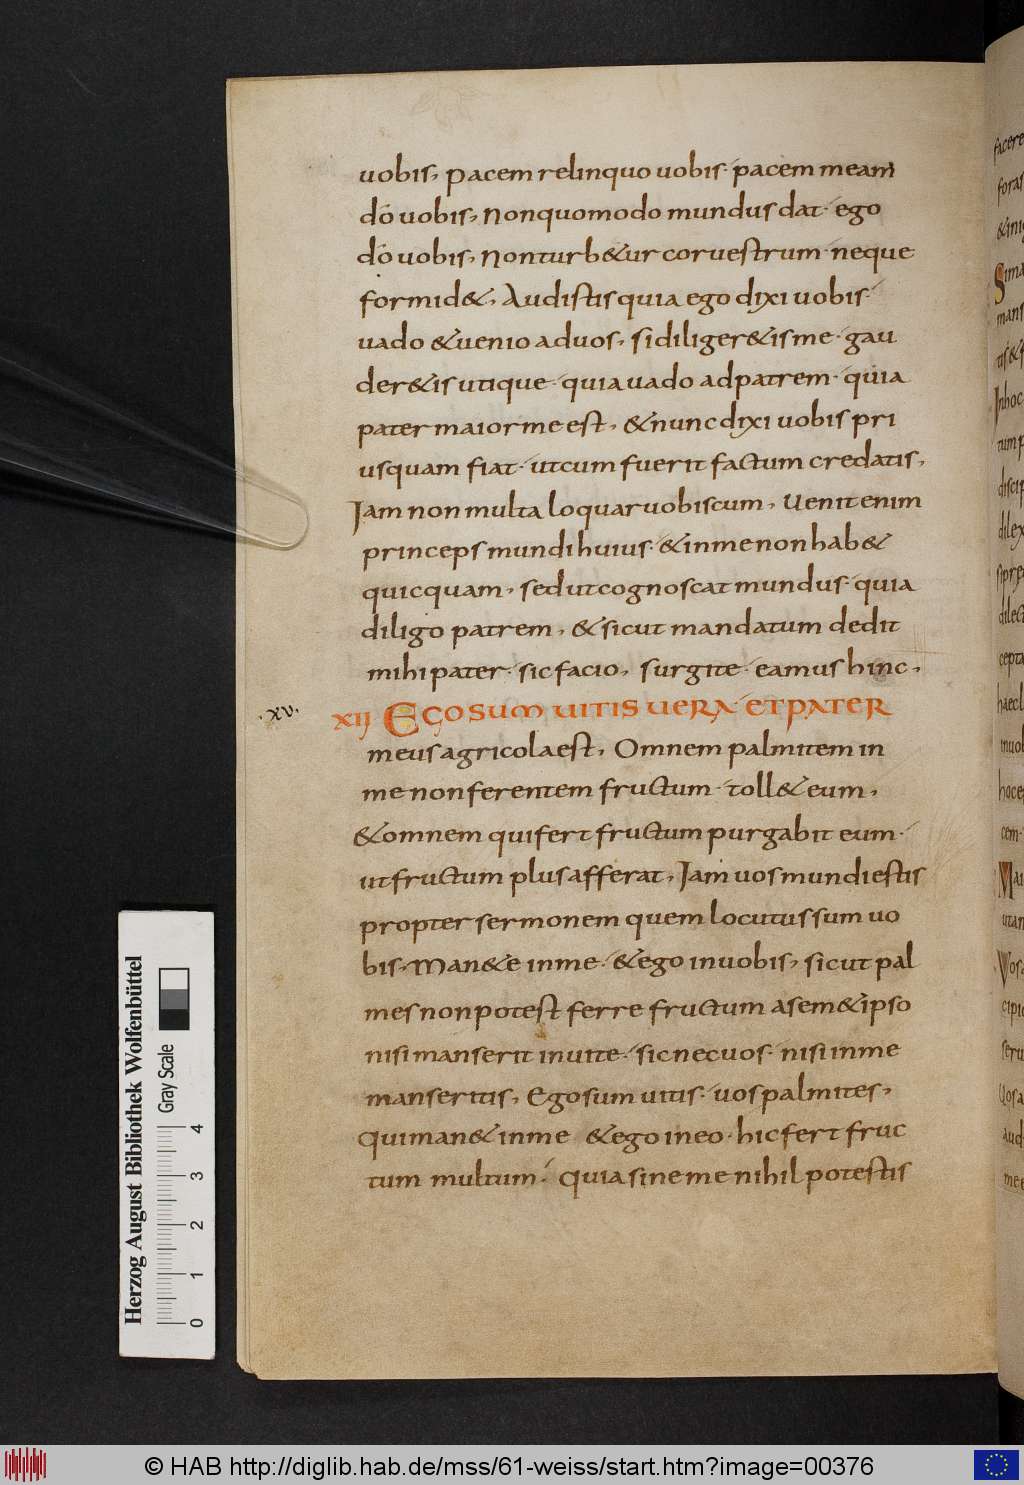 uobis, pacem relinquo uobis· pacem meam
do uobis, Non quomodo mundus dat· ego
do uobis, Non turb&ur cor uestrum· neque
formid&, Audistis quia ego dixi uobis·
uado & uenio ad uos, si diliger&is me· gau
der&is utique· quia uado ad patrem· quia
pater maior me est, & nunc dixi uobis pri
usquam fiat· ut cum fuerit factum credatis,
Iam non multa loquar uobiscum, Uenit enim
princeps mundi huius· & in me non hab&
quicquam, sed ut cognoscat mundus· quia
diligo patrem, & sicut mandatum dedit
mihi pater· sic facio, surgite· eamus hinc,
·xv· XIJ EGO SUM UITIS UERA· ET PATER
meus agricola est, Omnem palmitem in
me non ferentem fructum· toll& eum,
& omnem qui fert fructum purgabit eum·
ut fructum plus afferat, Iam uos mundi estis
propter sermonem quem locutus sum uo
bis, Man&e in me· & ego in uobis, sicut pal
mes non potest ferre fructum a sem&ipso
nisi manserit in uite· sic nec uos· nisi in me
manseritis, Ego sum uitis· uos palmites,
Qui man& in me & ego in eo· hic fert fruc
tum multum· quia sine me nihil potestis
facere
foras
Herzog August Bibliothek Wolfenbüttel
Gray Scale
0 1 2 3 4
© HAB http://diglib.hab.de/mss/61-weiss/start.htm?image=00376